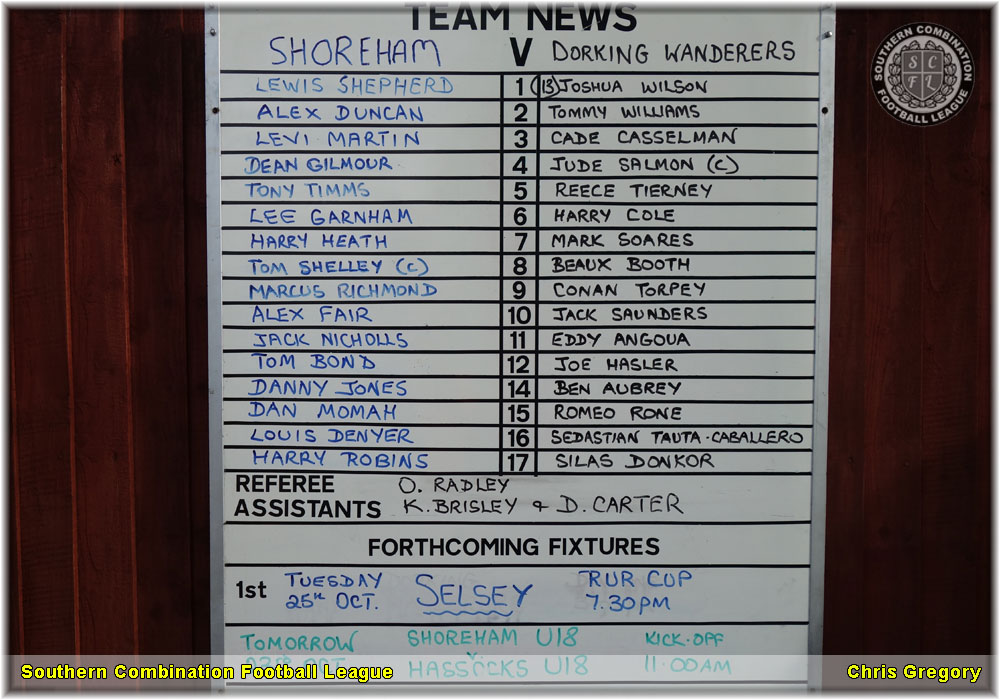 TEAM NEWS
SHOREHAM V DORKING WANDERERS
LEWIS SHEPHERD 1 (13) JOSHUA WILSON
ALEX DUNCAN 2 TOMMY WILLIAMS
LEVI MARTIN 3 CADE CASSELMAN
DEAN GILMOUR 4 JUDE SALMON (C)
TONY TIMMS 5 REECE TIERNEY
LEE GARNHAM 6 HARRY COLE
HARRY HEATH 7 MARK SOARES
TOM SHELLEY (C) 8 BEAUX BOOTH
MARCUS RICHMOND 9 CONAN TORPEY
ALEX FAIR 10 JACK SAUNDERS
JACK NICHOLLS 11 EDDY ANGOUA
TOM BOND 12 JOE HASLER
DANNY JONES 14 BEN AUBREY
DAN MOMAH 15 ROMEO RONE
LOUIS DENYER 16 SEDASTIAN TAUTA-CABALLERO
HARRY ROBINS 17 SILAS DONKOR
REFEREE O. RADLEY
ASSISTANTS K. BRISLEY & D. CARTER
FORTHCOMING FIXTURES
1st TUESDAY 25TH OCT. SELSEY RUR CUP 7.30PM
TOMORROW SHOREHAM U18 KICK-OFF
OCT V HASSOCKS U18 11:00AM
SOUTHERN COMBINATION FOOTBALL LEAGUE
SCFL
Southern Combination Football League
Chris Gregory